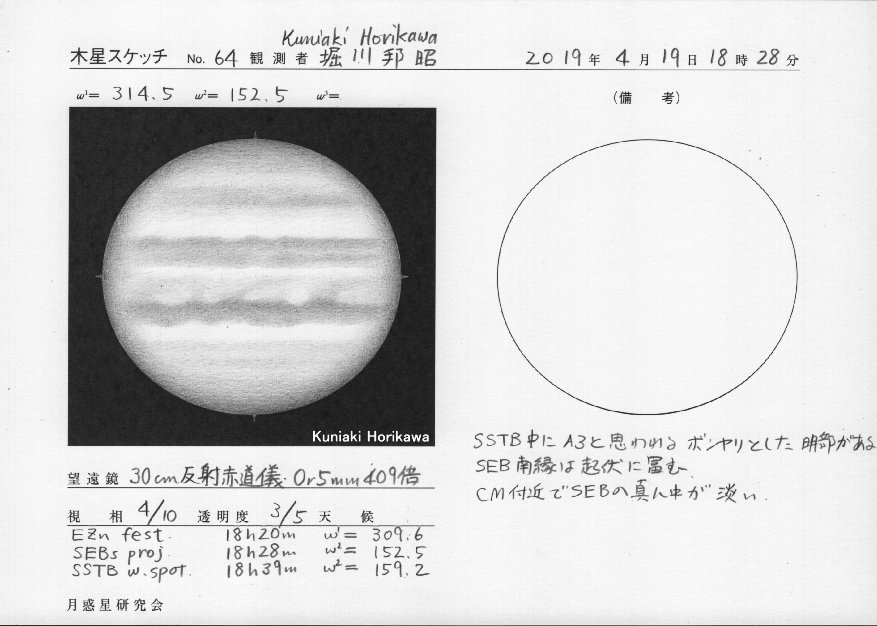 Kuniaki Horikawa
木星スケッチ No. 64 観測者 堀川邦昭 2019年 4月 19日 18時 28分
ω¹= 314.5 ω²= 152.5 ω³=
(備 考)
Kuniaki Horikawa
SSTB中にA3と思われるボンヤリとした明部がある
SEB南縁は起伏に富む
CM付近でSEBの真ん中が淡い.
望遠鏡 30cm反射赤道儀 Or5mm 409倍
視 相 4/10 透明度 3/5 天 候
EZn fest. 18h20m ω¹= 309.6
SEBs proj. 18h28m ω²= 152.5
SSTB w.spot. 18h39m ω²= 159.2
月惑星研究会